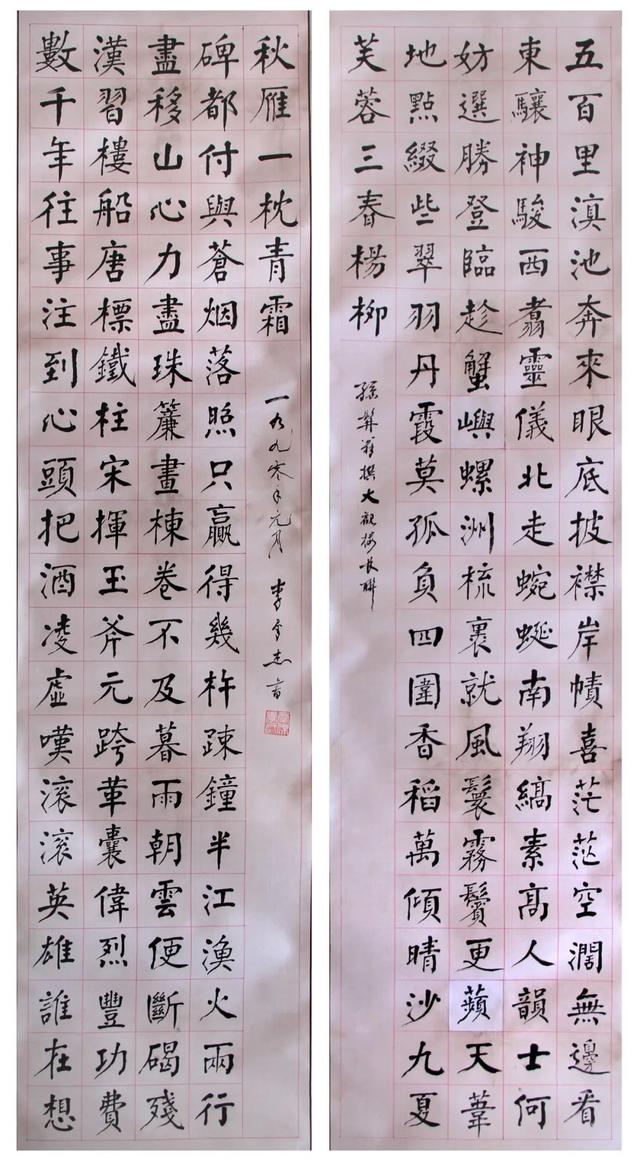 五百里滇池奔來眼底披襟岸幘喜茫茫空濶無邊看
東驤神駿西翥靈儀北走蜿蜒南翔縞素高人韻士何
妨選勝登臨趁蟹嶼螺洲梳裹就風鬟霧鬢更蘋天葦
地點綴些翠羽丹霞莫孤負四圍香稻萬傾晴沙九夏
芙蓉三春楊柳
孫髯翁撰大觀樓長聯
數千年往事注到心頭把酒凌虛嘆滾滾英雄誰在想
漢習樓船唐標鐵柱宋揮玉斧元跨革囊偉烈豐功費
盡移山心力盡珠簾畫棟卷不及暮雨朝雲便斷碣殘
碑都付與蒼烟落照只贏得幾杵疎鐘半江漁火兩行
秋雁一枕青霜
一九九零年元月